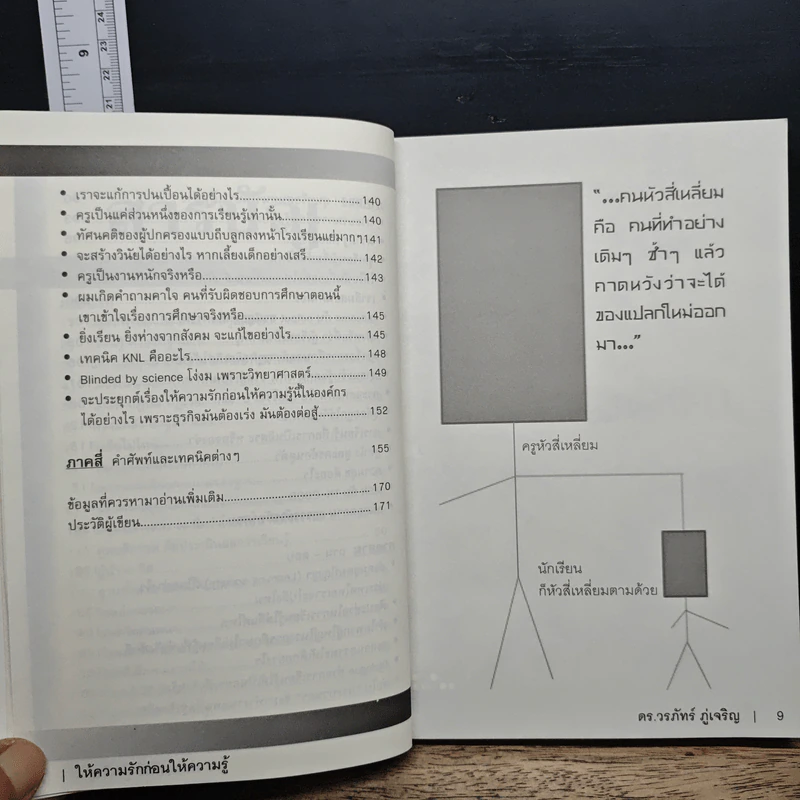 9
24
23
22
21
• เราจะแก้การปนเปื้อนได้อย่างไร.................................. 140
• ครูเป็นแค่ส่วนหนึ่งของการเรียนรู้เท่านั้น.................... 140
• ทัศนคติของผู้ปกครองแบบถีบลูกลงหน้าโรงเรียนแย่มากๆ 141
• จะสร้างวินัยได้อย่างไร หากเลี้ยงเด็กอย่างเสรี............ 142
• ครูเป็นงานหนักจริงหรือ........................................... 143
• ผมเกิดคำถามคาใจ คนที่รับผิดชอบการศึกษาตอนนี้
เขาเข้าใจเรื่องการศึกษาจริงหรือ............................... 145
• ยิ่งเรียน ยิ่งห่างจากสังคม จะแก้ไขอย่างไร................ 145
• เทคนิค KNL คืออะไร............................................. 148
• Blinded by science โง่งม เพราะวิทยาศาสตร์............ 149
• จะประยุกต์เรื่องให้ความรักก่อนให้ความรู้นี้ในองค์กร
ได้อย่างไร เพราะธุรกิจมันต้องเร่ง มันต้องต่อสู้............ 152
ภาคสี่ คำศัพท์และเทคนิคต่างๆ 155
ข้อมูลที่ควรหามาอ่านเพิ่มเติม.................................... 170
ประวัติผู้เขียน........................................................ 171
| ให้ความรักก่อนให้ความรู้
“...คนหัวสี่เหลี่ยม
คือ คนที่ทำอย่าง
เดิมๆ ซ้ำๆ แล้ว
คาดหวังว่าจะได้
ของแปลกใหม่ออก
มา...”
ครูหัวสี่เหลี่ยม
นักเรียน
ก็หัวสี่เหลี่ยมตามด้วย
ดร.วรภัทร์ ภู่เจริญ | 9